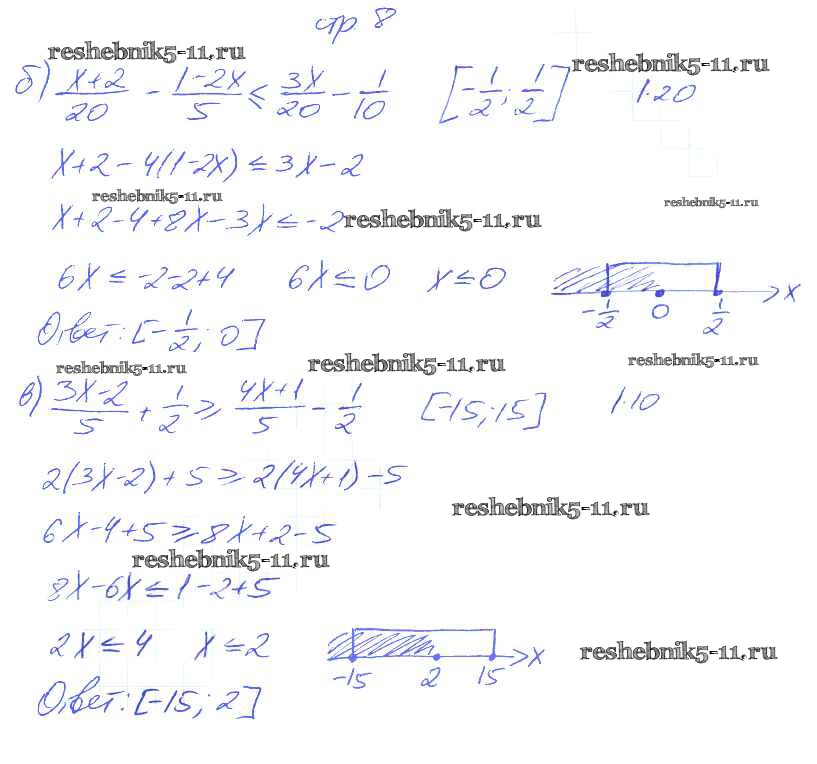 стр 8
reshebnik5-11.ru
reshebnik5-11.ru
б) (x+2)/20 - (1-2x)/5 ≤ 3x/20 - 1/10 [-1/2; 1/2] |·20
x+2-4(1-2x) ≤ 3x-2
reshebnik5-11.ru reshebnik5-11.ru
x+2-4+8x-3x ≤ -2 reshebnik5-11.ru
6x ≤ -2-2+4 6x ≤ 0 x ≤ 0 x
-1/2 0 1/2
Ответ: [-1/2; 0]
reshebnik5-11.ru reshebnik5-11.ru reshebnik5-11.ru
в) (3x-2)/5 + 1/2 ≥ (4x+1)/5 - 1/2 [-15; 15] |·10
2(3x-2)+5 ≥ 2(4x+1)-5
reshebnik5-11.ru
6x-4+5 ≥ 8x+2-5
reshebnik5-11.ru
8x-6x ≤ 1-2+5
2x ≤ 4 x ≤ 2 x reshebnik5-11.ru
-15 2 15
Ответ: [-15; 2]